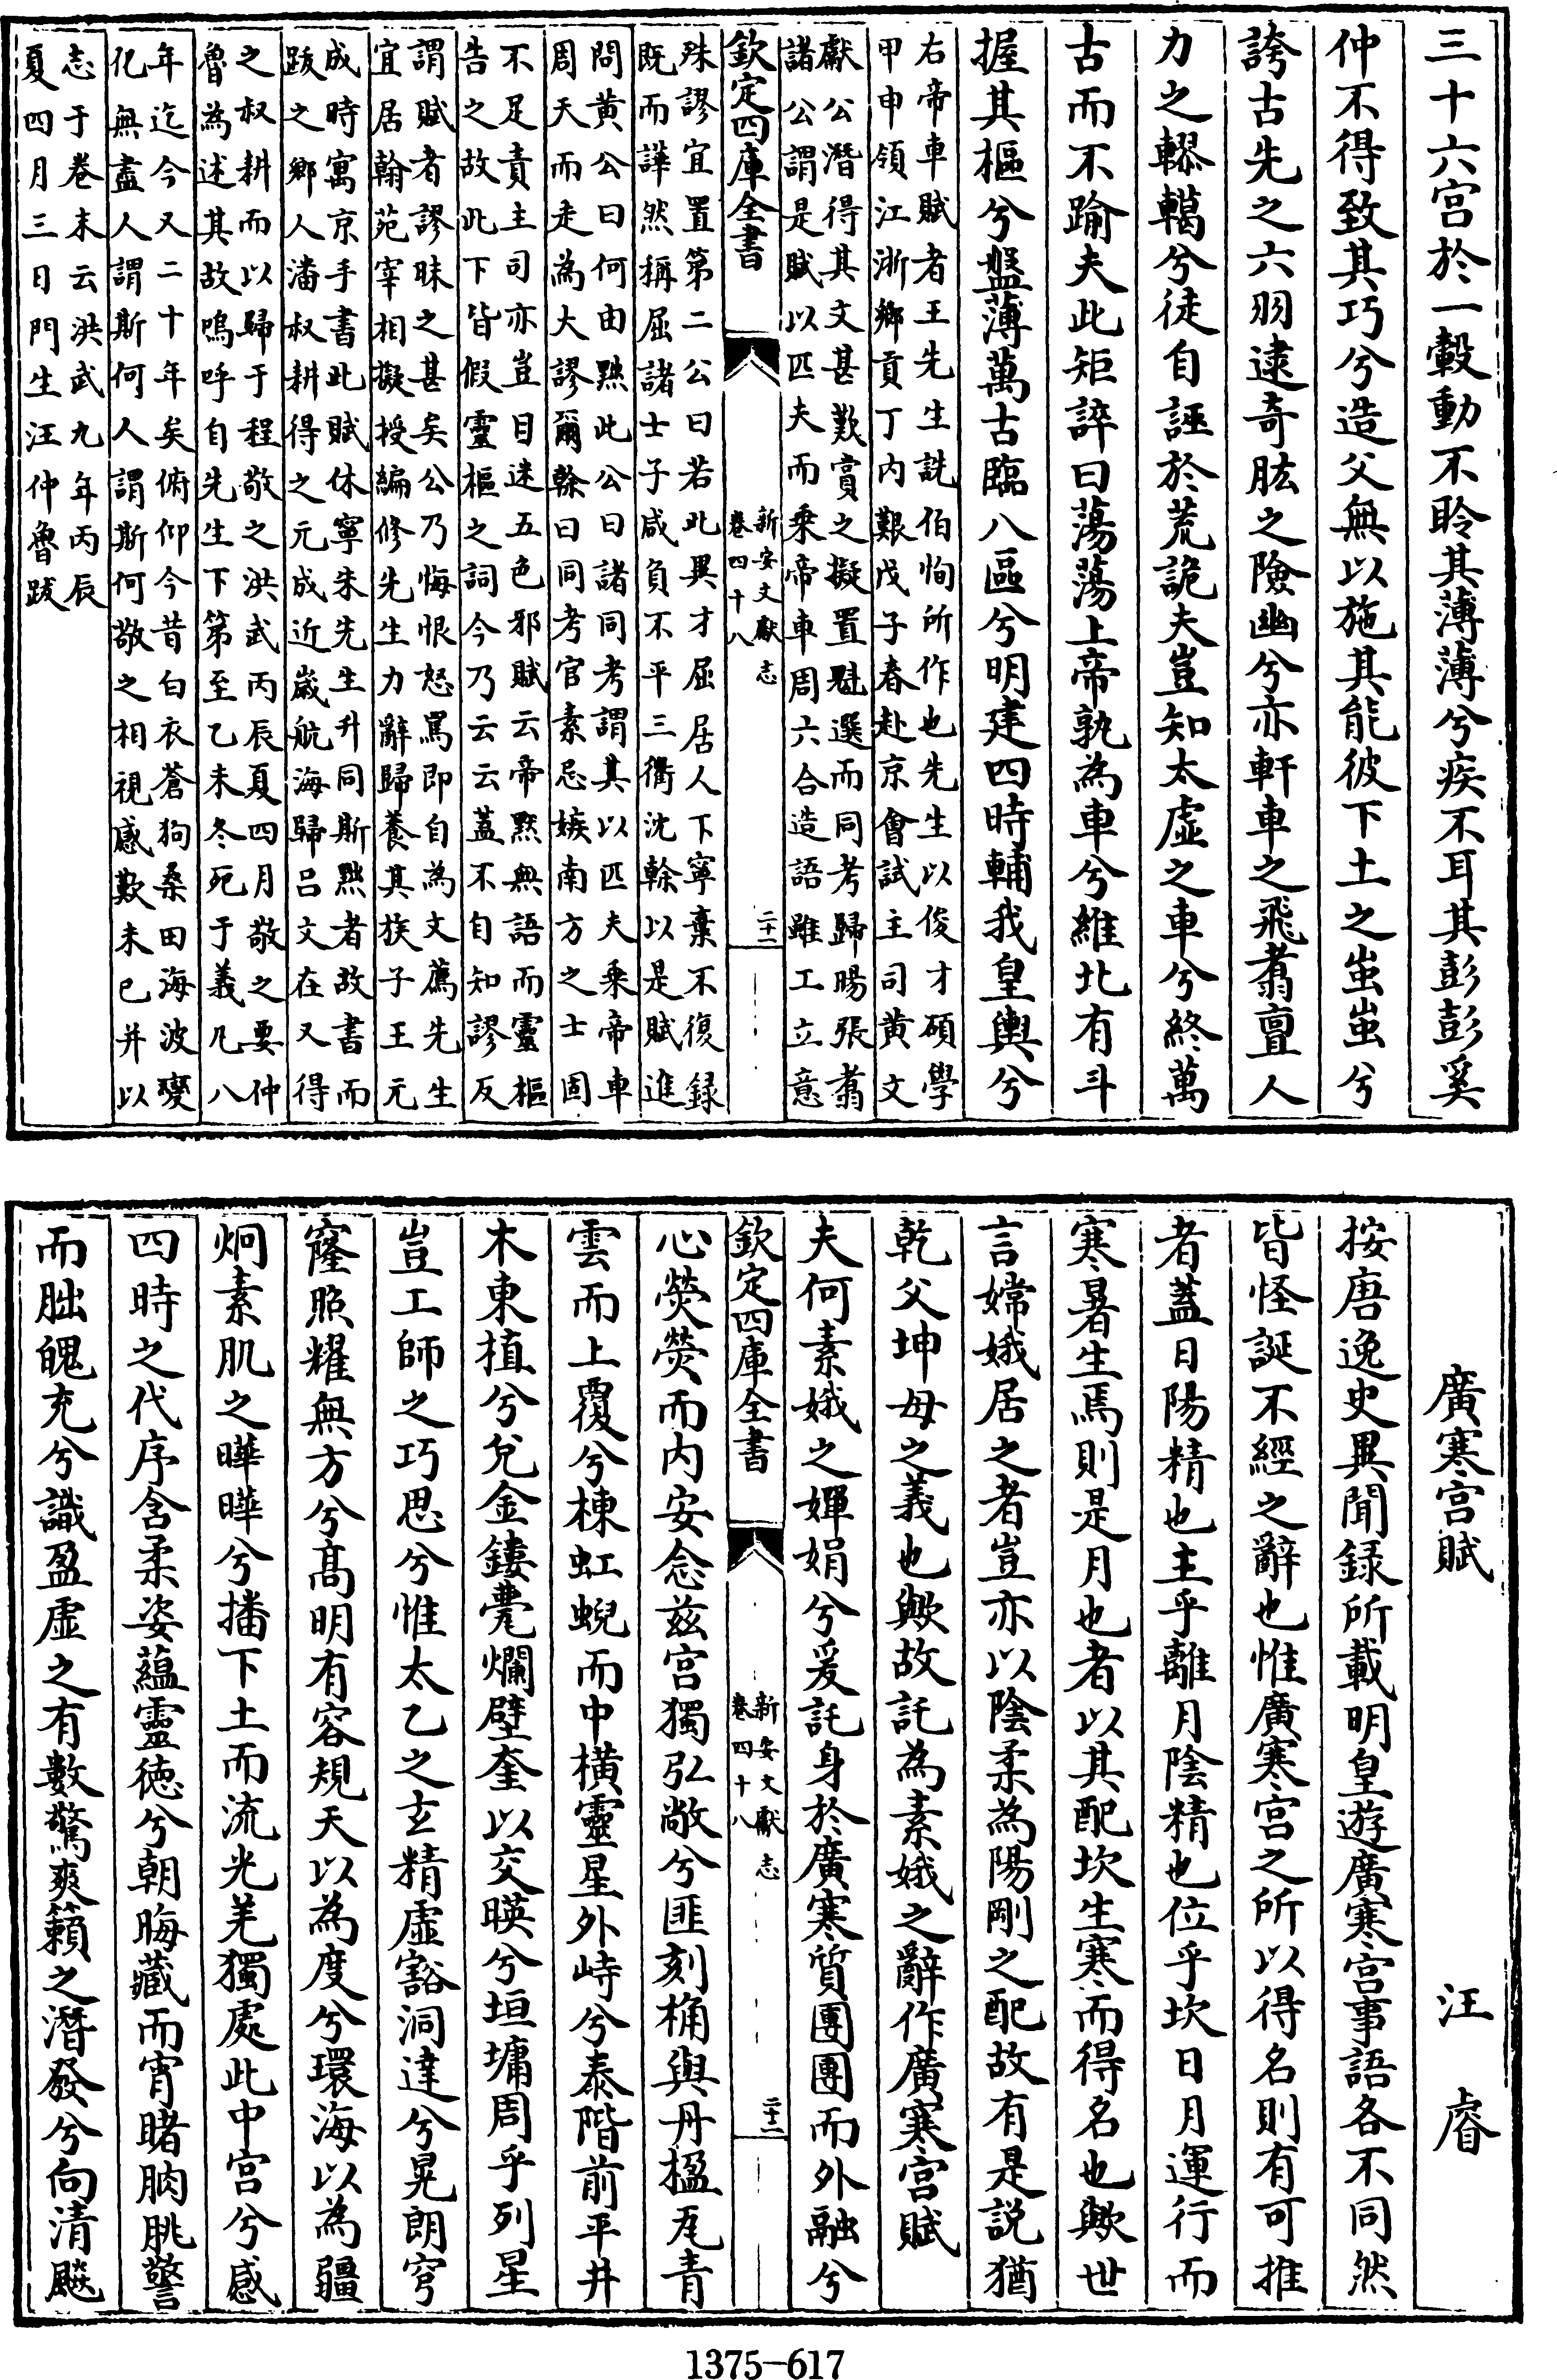 三十六宫於一轂動不聆其薄薄兮疾不耳其彭彭奚
仲不得致其巧兮造父無以施其能彼下土之蚩蚩兮
誇古先之六羽逮奇肱之險幽兮亦軒車之飛翥亶人
力之轇轕兮徒自誣於荒詭夫豈知太虛之車兮終萬
古而不踰夫此矩誶曰蕩蕩上帝孰為車兮維北有斗
握其樞兮盤薄萬古臨八區兮明建四時輔我皇輿兮
右帝車賦者王先生詵伯恂所作也先生以俊才碩學
甲申領江浙鄉貢丁内艱戊子春赴京會試主司黄文
獻公潛得其文甚歎賞之擬置魁選而同考歸暘張翥
諸公謂是賦以匹夫而乘帝車周六合造語雖工立意
欽定四庫全書
新安文獻志
卷四十八
二十一
殊謬宜置第二公曰若此異才屈居人下寧棄不復録
既而譁然稱屈諸士子咸負不平三衢沈榦以是賦進
問黄公曰何由㸃此公曰諸同考謂其以匹夫乘帝車
周天而走為大謬爾榦曰同考官素忌嫉南方之士固
不足責主司亦豈目迷五色邪賦云帝黙無語而靈樞
告之故此下皆假靈樞之詞今乃云云蓋不自知謬反
謂賦者謬昧之甚矣公乃悔恨怒罵即自為文薦先生
宜居翰苑宰相擬授編修先生力辭歸養其族子王元
成時寓京手書此賦休寧朱先生升同斯㸃者故書而
跋之鄉人潘叔耕得之元成近嵗航海歸吕文在又得
之叔耕而以歸于程敬之洪武丙辰夏四月敬之要仲
魯為述其故嗚呼自先生下第至乙未冬死于義凡八
年迄今又二十年矣俯仰今昔白衣蒼狗桑田海波變
化無盡人謂斯何人謂斯何敬之相視感歎未已并以
志于卷末云洪武九年丙辰
夏四月三日門生汪仲魯跋
廣寒宫賦　汪睿
按唐逸史異聞録所載明皇遊廣寒宫事語各不同然
皆怪誕不經之辭也惟廣寒宫之所以得名則有可推
者蓋日陽精也主乎離月陰精也位乎坎日月運行而
寒暑生焉則是月也者以其配坎生寒而得名也歟世
言嫦娥居之者豈亦以陰柔為陽剛之配故有是説猶
乾父坤母之義也歟故託為素娥之辭作廣寒宫賦
夫何素娥之嬋娟兮爰託身於廣寒質團團而外融兮
欽定四庫全書
新安文獻志
卷四十八
二十二
心熒熒而内安念兹宫獨弘敞兮匪刻桷與丹楹尨青
雲而上覆兮棟虹蜺而中横靈星外峙兮泰階前平井
木東植兮兊金鏤甍爛壁奎以交暎兮垣墉周乎列星
豈工師之巧思兮惟太乙之玄精虛豁洞達兮晃朗穹
窿照耀無方兮髙明有容規天以為度兮環海以為疆
炯素肌之曄曄兮播下土而流光羌獨處此中宫兮感
四時之代序含柔姿藴靈徳兮朝晦藏而宵睹朒朓警
而朏魄充兮識盈虛之有數驚爽籟之潛發兮向清飈
1375-617